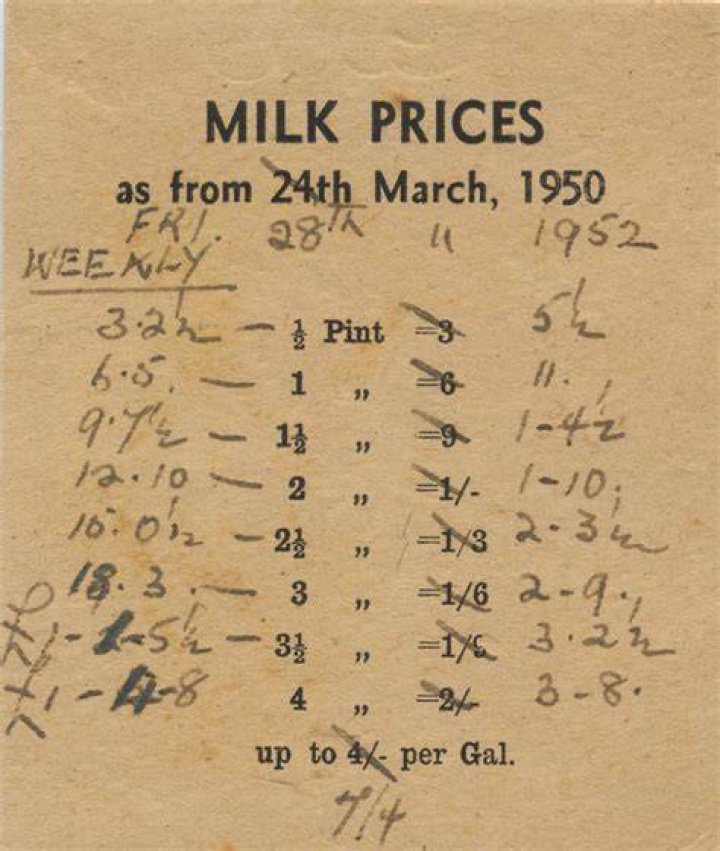 MILK PRICES
as from 24th March, 1950
FRI. 28TH " 1952
WEEKLY
3.2½ — ½ Pint =3 5½
6.5. — 1 " =6 11.
9.7½ — 1½ " =9 1-4½
12.10 — 2 " =1/- 1-10.
15.0½ — 2½ " =1/3 2-3½
18.3. — 3 " =1/6 2-9.
1-1-5½ — 3½ " =1/9 3.2½
1-4-8 4 " =2/- 3-8.
up to 4/- per Gal.
7/4